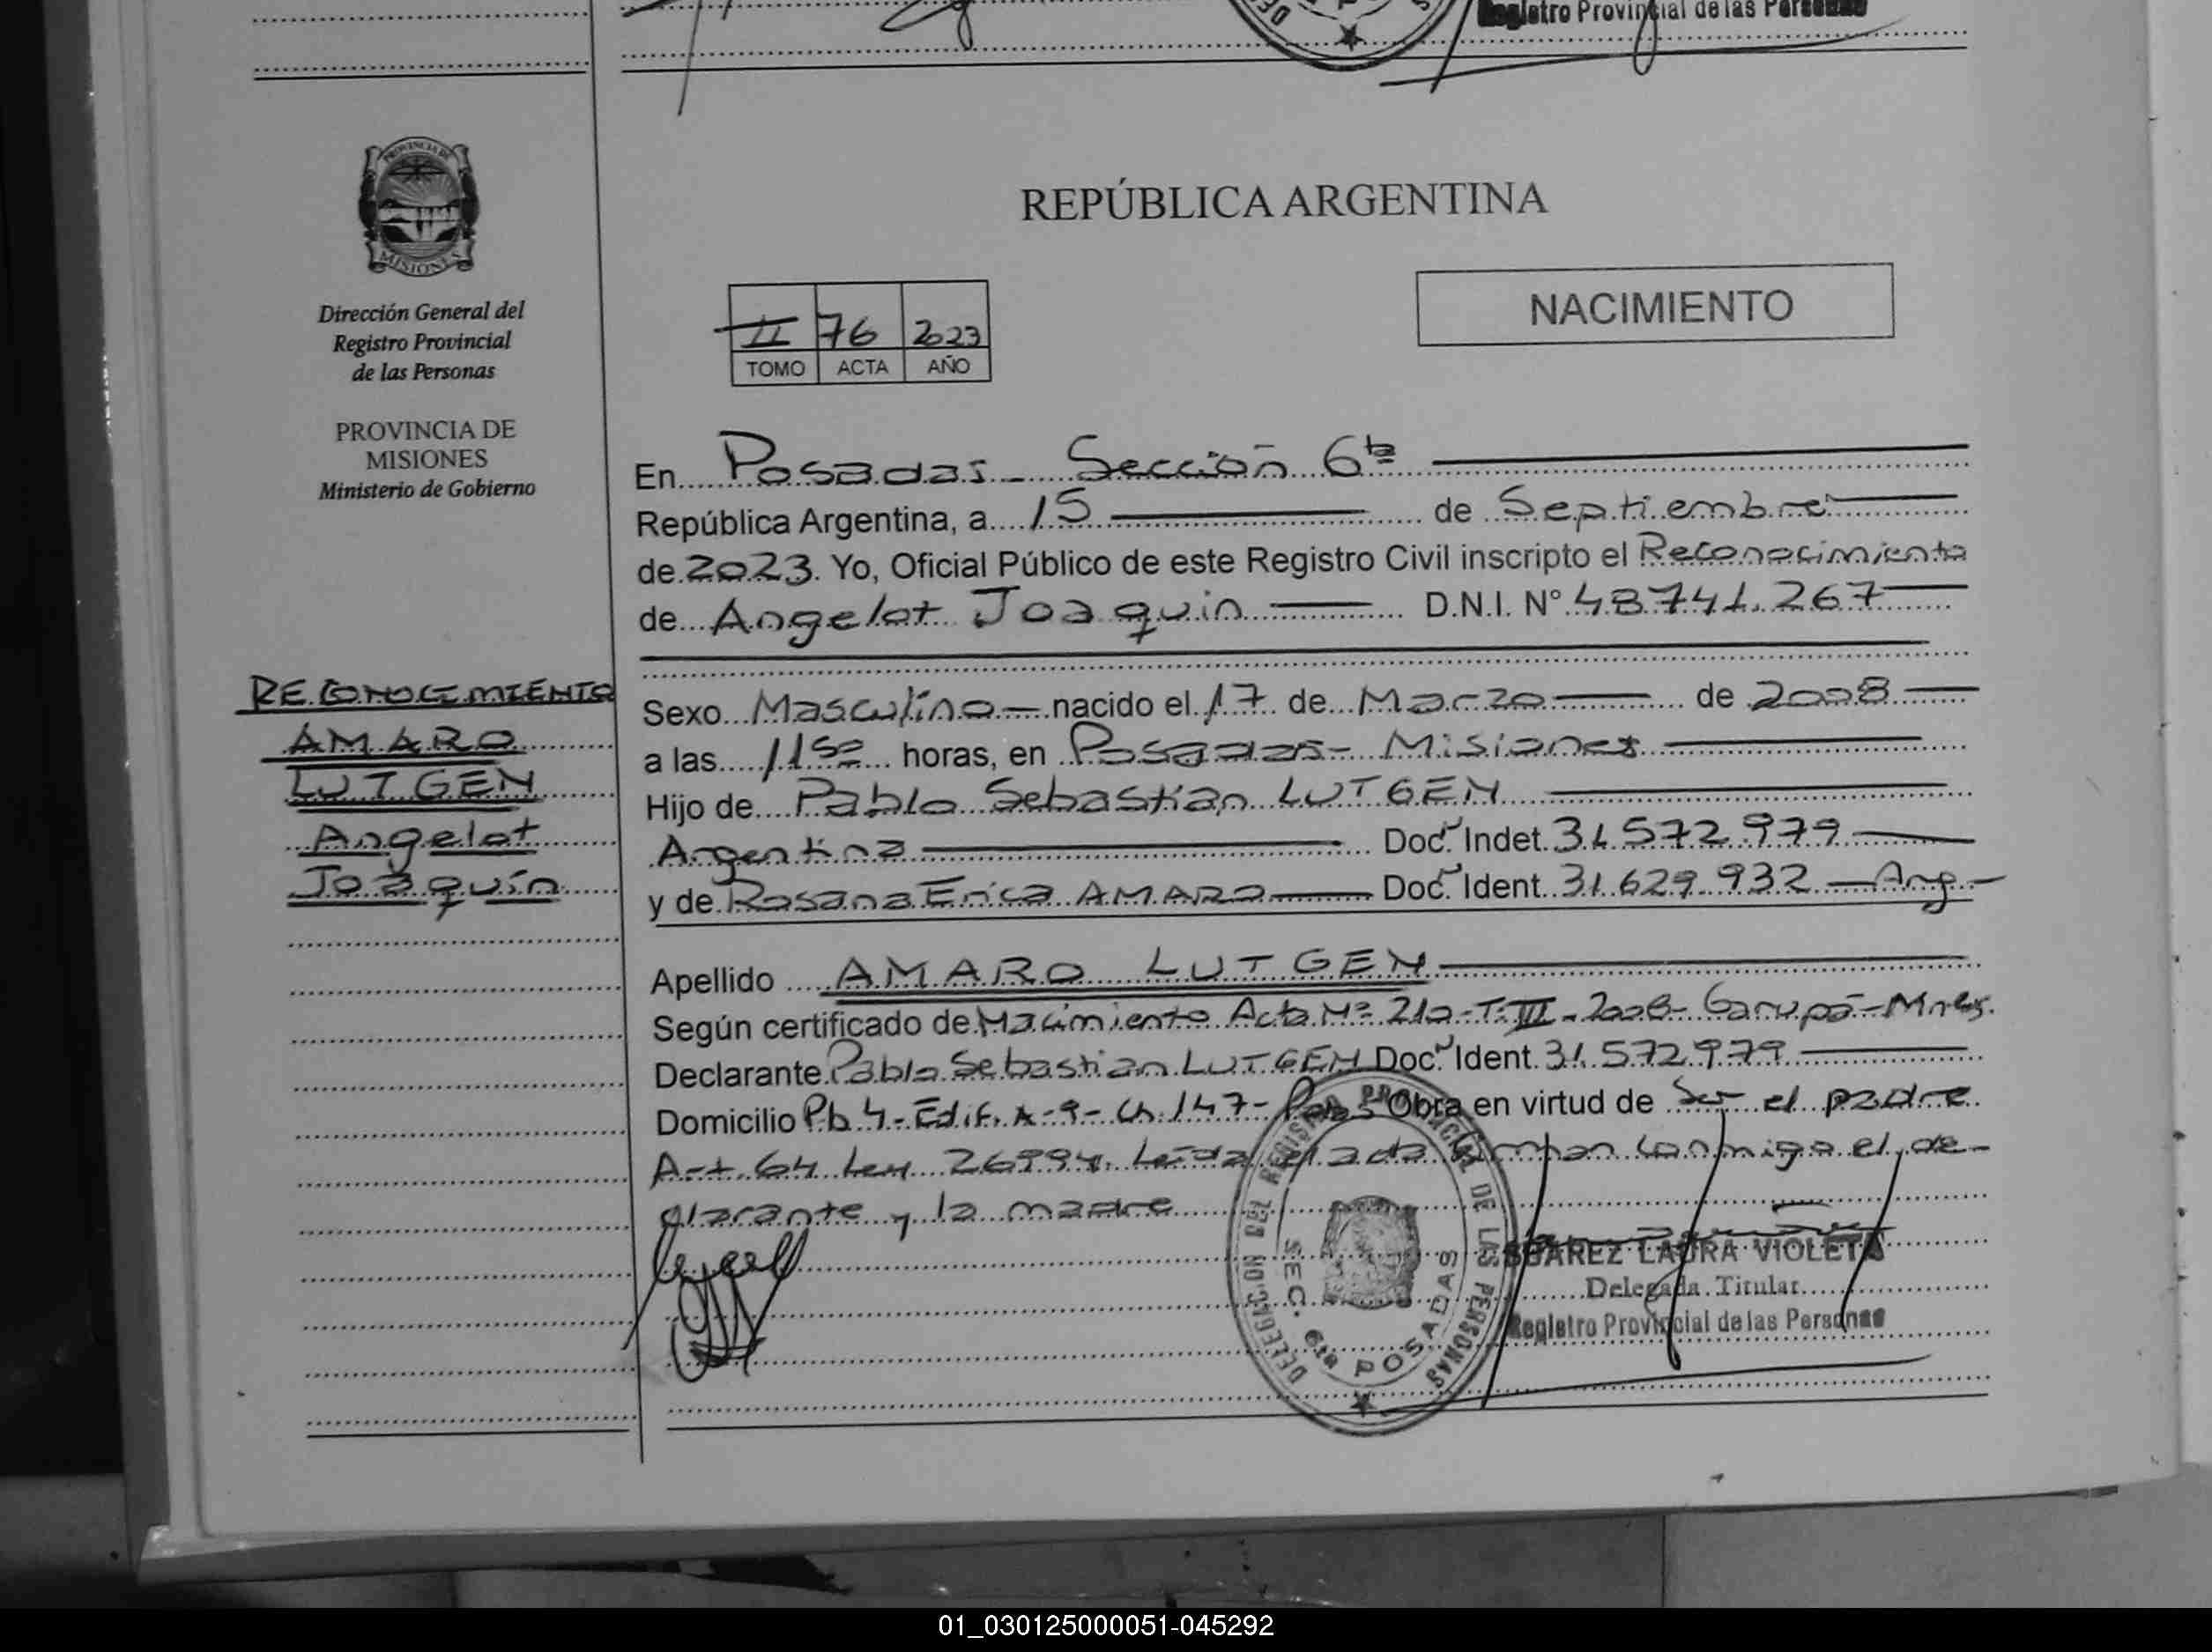 Registro Provincial de las Personas
PROVINCIA DE
MISIONES
Dirección General del
Registro Provincial
de las Personas
PROVINCIA DE
MISIONES
Ministerio de Gobierno
RECONOCIMIENTO
AMARO
LUTGEN
Angelot
Joaquín
REPÚBLICA ARGENTINA
NACIMIENTO
II 76 2023
TOMO ACTA AÑO
En Posadas - Sección 6ta
República Argentina, a 15 de Septiembre
de 2023. Yo, Oficial Público de este Registro Civil inscripto el Reconocimiento
de Angelot Joaquin D.N.I. N° 48741.267
Sexo Masculino nacido el 17 de Marzo de 2008
a las 11 50 horas, en Posadas - Misiones
Hijo de Pablo Sebastián LUTGEN
Argentina Doc. Indet. 31.572.979
y de Rosana Erica AMARO Doc. Ident. 31.629.932 - Arg -
Apellido AMARO LUTGEN
Según certificado de Nacimiento Acta Nº 210-T-III-2008- Garupá-Mnes.
Declarante Pablo Sebastian LUTGEN Doc. Ident. 31.572.979
Domicilio Pb 4-Edif. A-9-Ch.147- Pdas Obra en virtud de Ser el padre
Art. 64 Ley 26994. Leída el acta firman conmigo el de-
clarante y la madre
DELEGACION DEL REGISTRO PROVINCIAL DE LAS PERSONAS
SEC. 6ta POSADAS
SUAREZ LAURA VIOLETA
Delegada Titular
Registro Provincial de las Personas
01_030125000051-045292